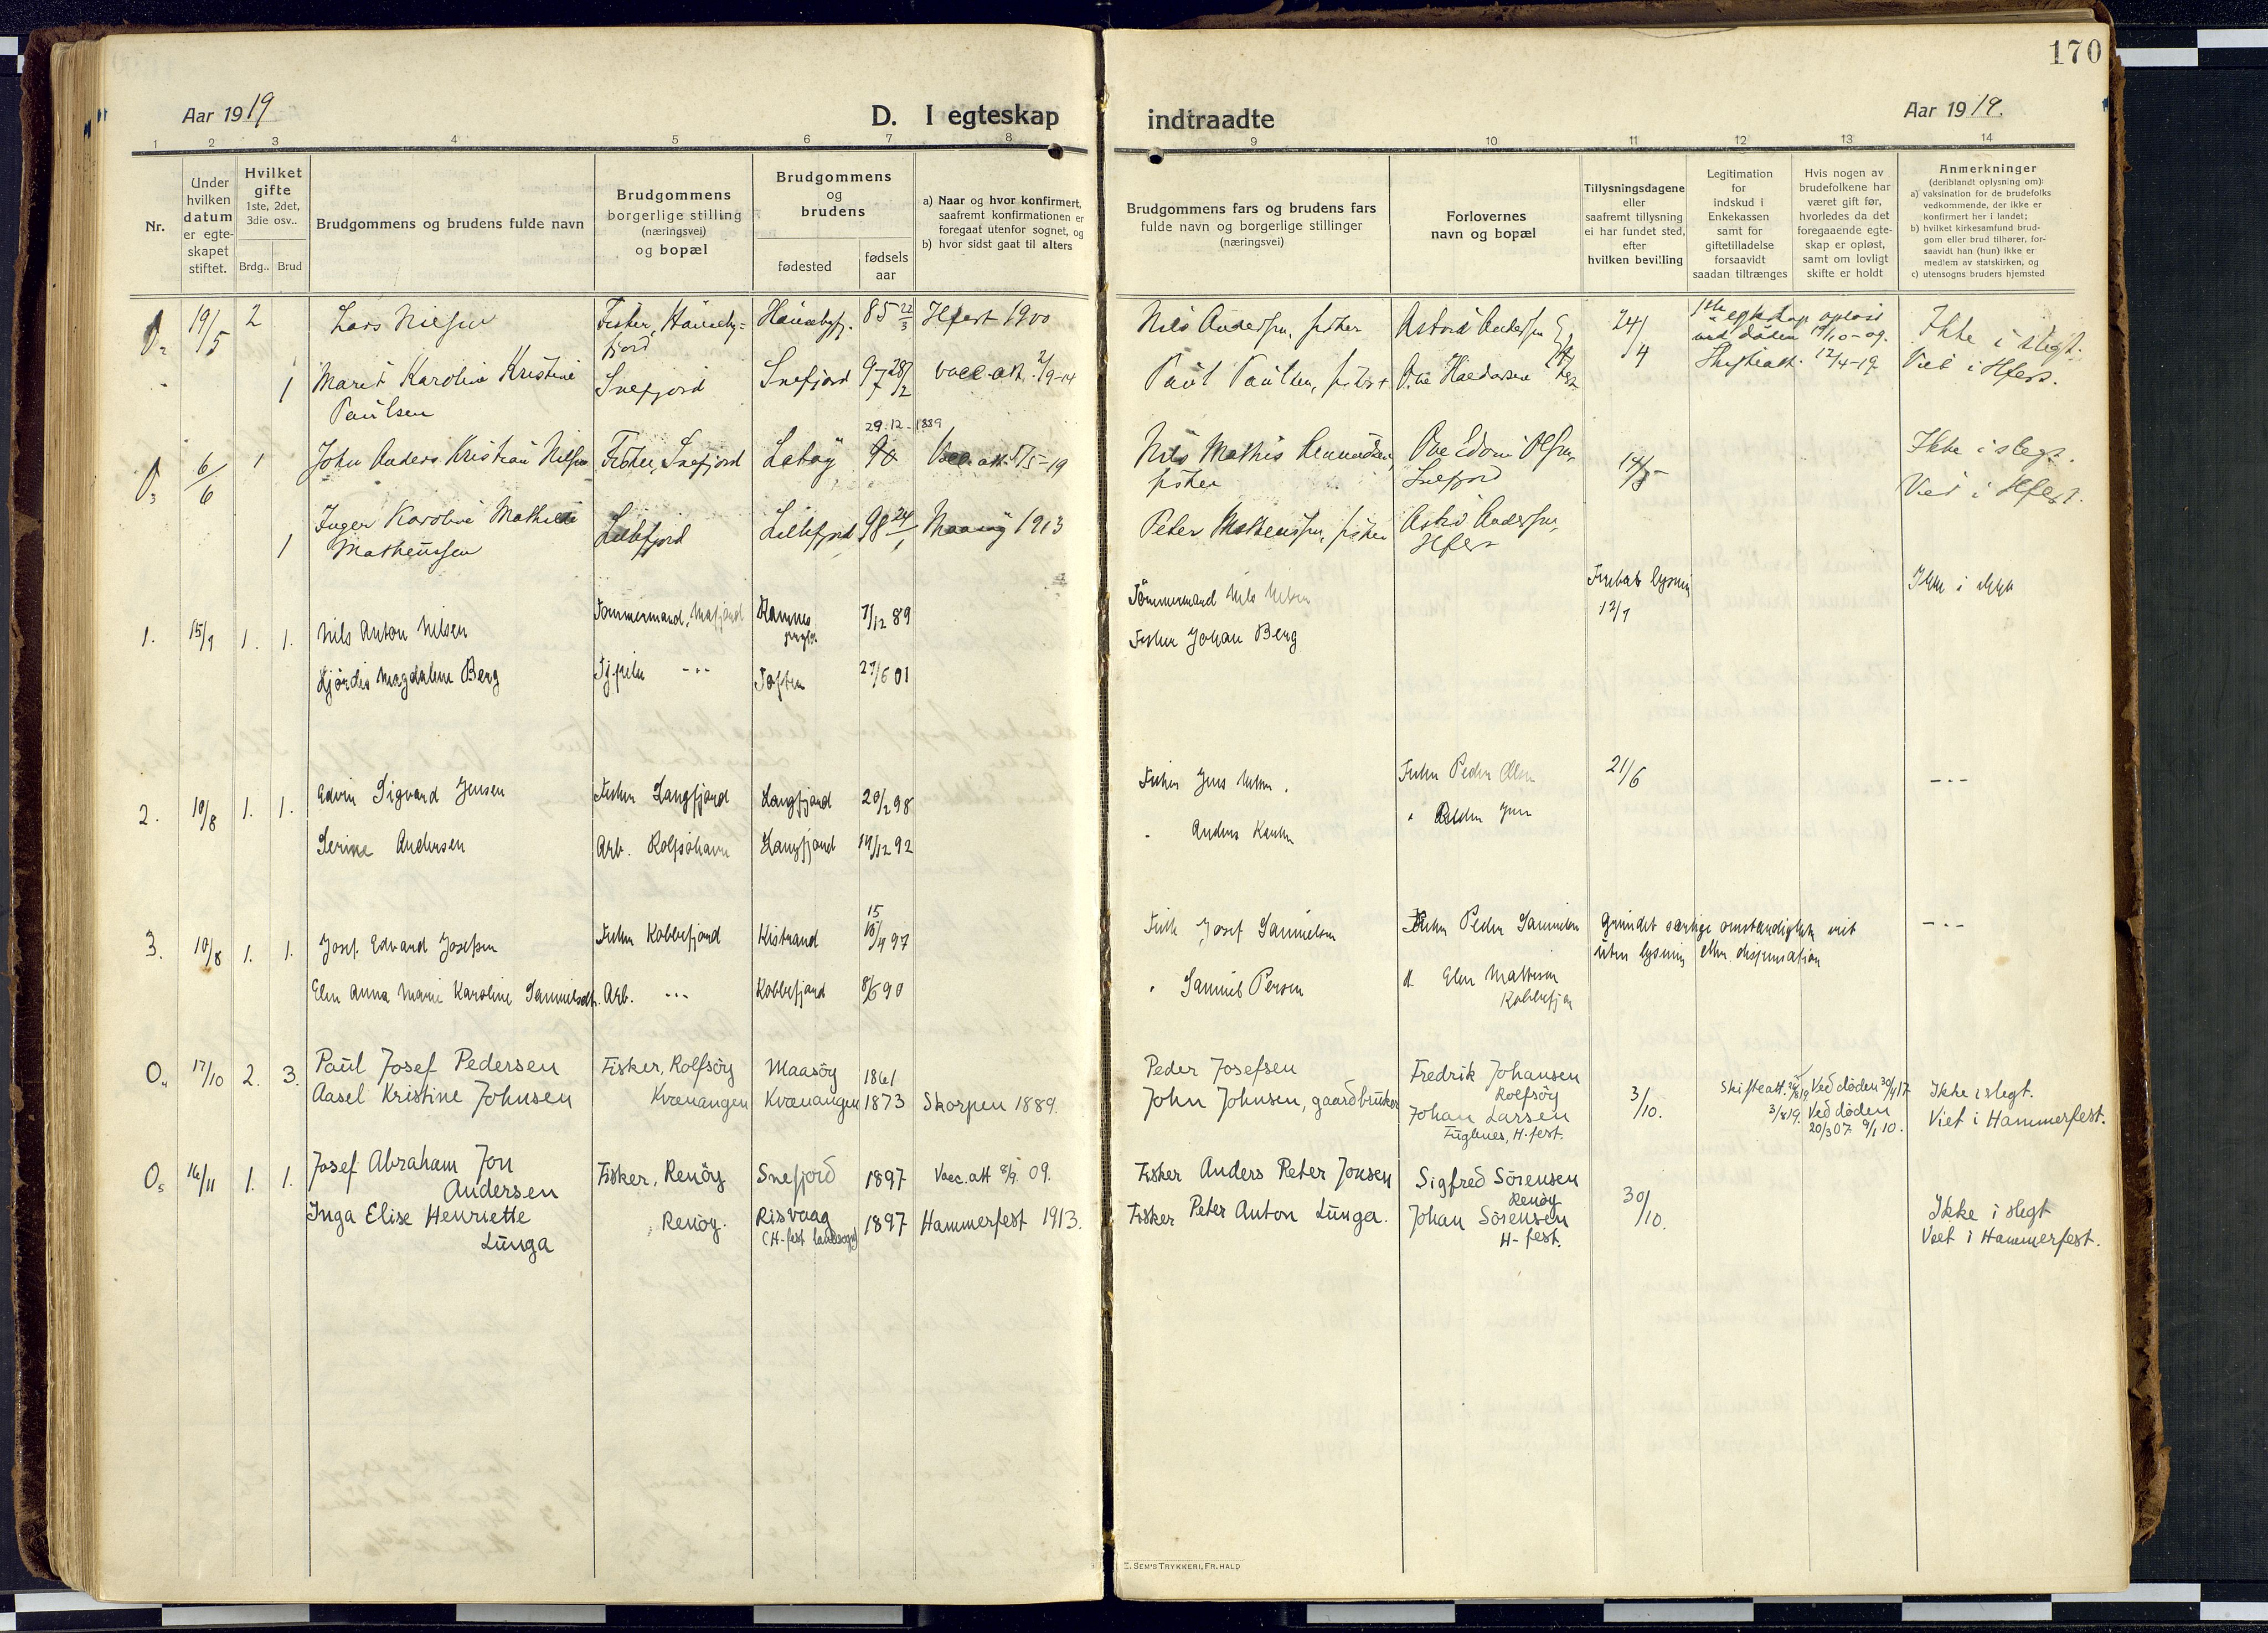 170
Aar 1919
D. I egteskap
indtraadte
Aar 1919.
1 2 3 4 5 6 7 8 9 10 11 12 13 14
Nr.
Under hvilken datum er egte-skapet stiftet.
Hvilket gifte
1ste, 2det, 3die osv..
Brdg.. Brud
Brudgommens og brudens fulde navn
Brudgommens borgerlige stilling (næringsvei) og bopæl
Brudgommens og brudens
fødested
fødsels aar
a) Naar og hvor konfirmert, saafremt konfirmationen er foregaat utenfor sognet, og
b) hvor sidst gaat til alters
Brudgommens fars og brudens fars fulde navn og borgerlige stillinger (næringsvei)
Forlovernes navn og bopæl
Tillysningsdagene eller saafremt tillysning ei har fundet sted, efter hvilken bevilling
Legitimation for indskud i Enkekassen samt for giftetilladelse forsaavidt saadan tiltrænges
Hvis nogen av brudefolkene har været gift før, hvorledes da det foregaaende egte-skap er opløst, samt om lovligt skifte er holdt
Anmerkninger
(deriblandt oplysning om):
a) vaksination for de brudefolks vedkommende, der ikke er konfirmert her i landet;
b) hvilket kirkesamfund brud-gom eller brud tilhører, for-saavidt han (hun) ikke er medlem av statskirken, og
c) utensogns bruders hjemsted
19/5 2 Lars Nielsen Fisker, 85 22/3 Hfest 1900 Nils Andersen, fisker 24/4 Ikke i slegt.
1 Maret Karolina Kristine Paulsen Snefjord Snefjord 97 28/2 vacc. att. 2/9-14 Paul Paulsen, fisker Skifteatt. 12/4-19 Viet i Hfest.
29.12.1889
6/6 1 John Anders Kristian Nilsen Fisker, Snefjord 90 Vacc. att. 5/5-19 Nils Mathis fisker Snefjord Ikke i slegt.
Viet i Hfest.
1 Inger Karoline Mathilde Matheussen Lillefjord Lillefjord 98 24/1 Maasøy 1913 Peter Matheussen, fisker Hfest
1. 15/7 1. 1. Nils Anton Nilsen Tømmermand, 7/12 89 Tømmermand Nils Nilsen lysning 12/7
Hjørdis Magdalene Berg 27/6 01 Fisker Johan Berg
2. 10/8 1. 1. Edvin Sigvard Jensen Fisker Langfjord Langfjord 20/2 98 Fisker Jens Fisker Peder Olsen 21/6 -..-
Serine Andersen Arb. Rolfsøhavn Langfjord 19/12 92 Anders
3. 10/8 1. 1. Josef Edvard Josefsen Fisker Kobbefjord Kistrand 15/4 97 Josef Samuelsen Fisker Peder Samuelsen Grundet særlige omstændigheter viet uten lysning eller dispensation -..-
Elen Anna Marie Karoline Samuelsdt. Arb. -..- Kobbefjord 8/6 90 Samuel Persen Kobbefjor
O4 17/10 2. 3. Paul Josef Pedersen Fisker, Rolfsøy Maasøy 1861 Peder Josefsen Fredrik Johansen Rolfsøy 3/10. Skifteatt. Ved døden 30/4 17 Ikke i slegt.
Aasel Kristine Johnsen Kvænangen Kvænangen 1873 Skorpen 1889. John Johnsen, gaardbruker Johan Larsen Fuglenes, H-fest. 3/8 19. Ved døden 20/3 07. 9/1 10. Viet i Hammerfest.
O5 16/11 1. 1. Josef Abraham Jon Andersen Fisker, Renøy Snefjord 1897 Vacc. att 8/9. 09. Fisker Anders Peter Jonsen Sigfred Sørensen Renøy 30/10.
Inga Elise Henriette Lunga Renøy. Risvaag (H-fest landsogn) 1897 Hammerfest 1913. Fisker Peter Anton Lunga. Johan Sørensen H-fest. Ikke i slegt
Viet i Hammerfest.
E. SEM'S TRYKKERI, FR.HALD